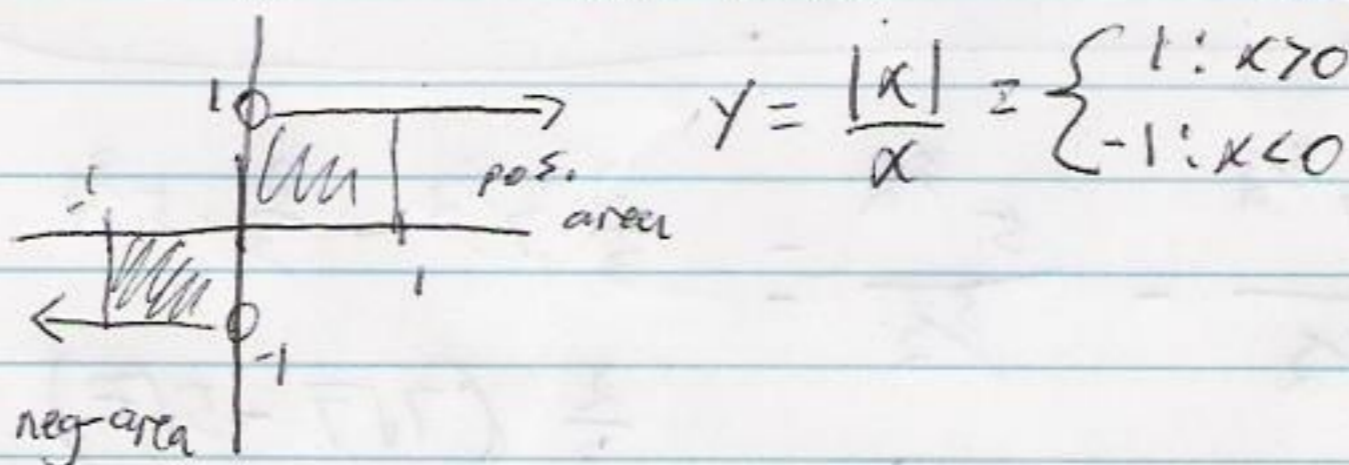 1
pos.
area
-1
1
-1
neg-area
y = |x|/x = { 1 : x>0
-1 : x<0